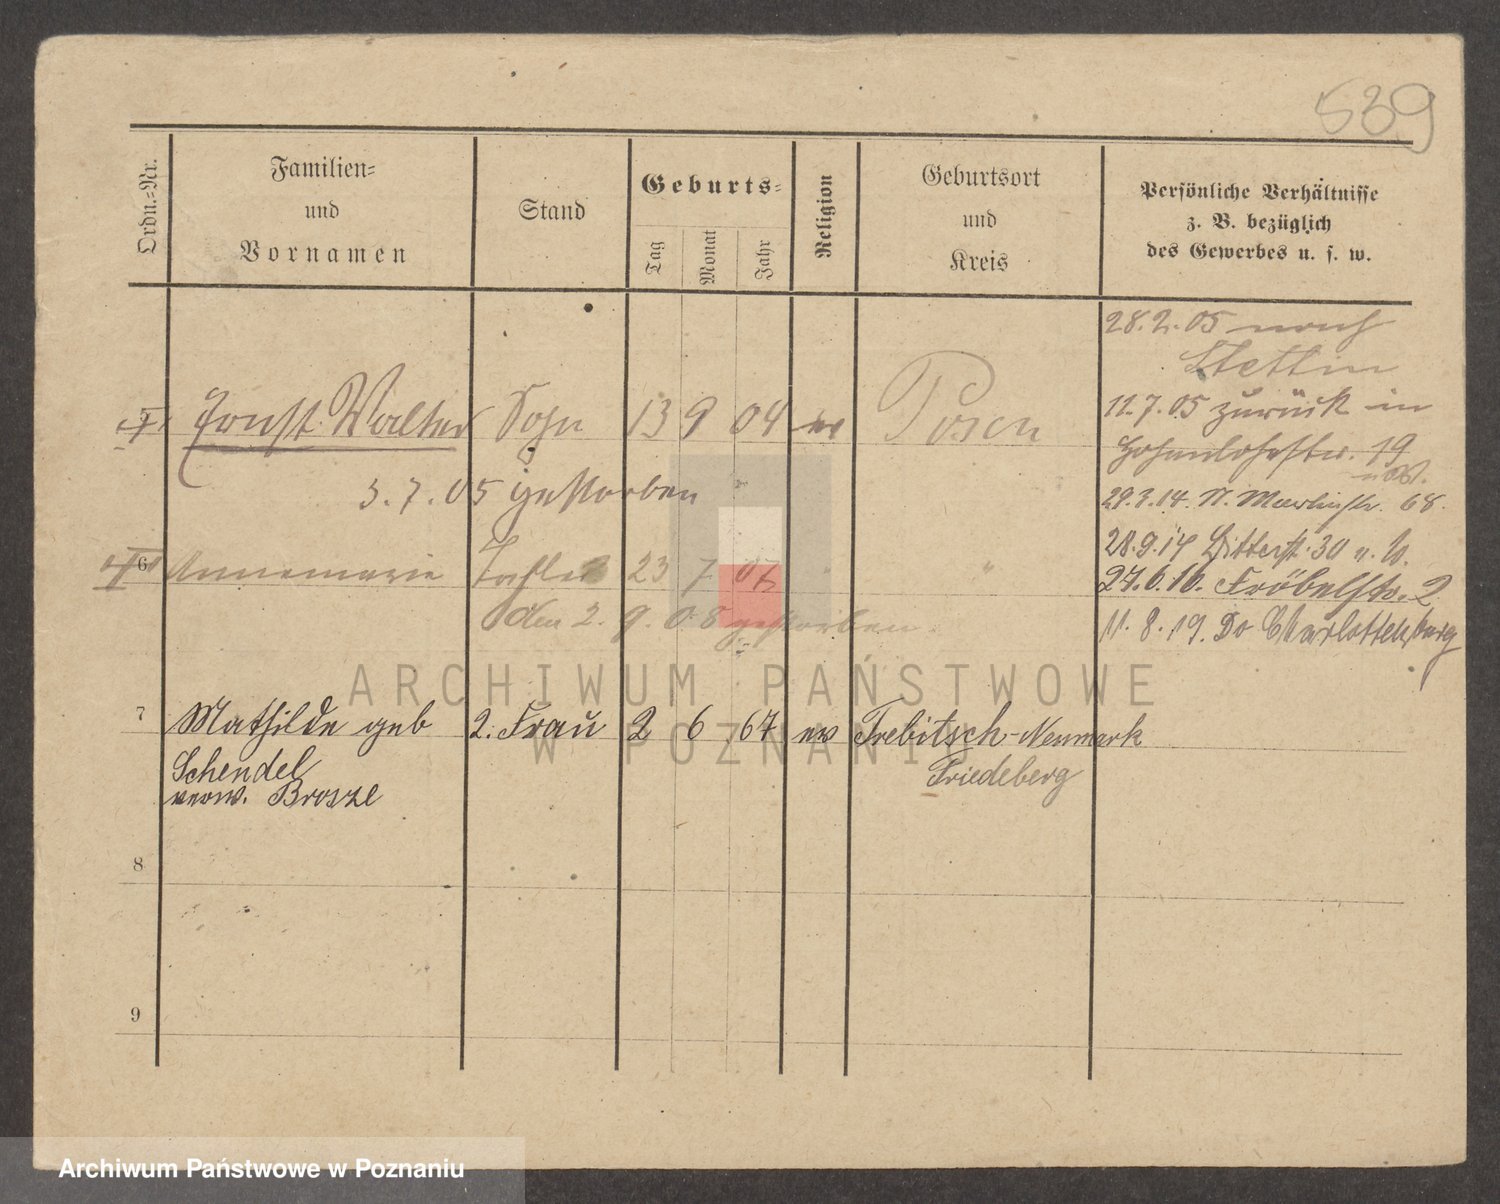 539
Ordn.-Nr.
Familien-
und
Vornamen
Stand
Geburts-
Tag
Monat
Jahr
Religion
Geburtsort
und
Kreis
Persönliche Verhältnisse
z. B. bezüglich
des Gewerbes u. s. w.
28.2.05 nach
Stettin
Ernst Walter Sohn 13 9 04 ev Posen
11.7.05 zurück in
Hohenlohestr. 19
3.7.05 gestorben
29.3.14. St. Martinstr. 68.
28.9.14 Ritterst. 30
6 Annemarie Tochter 23 7 07 " "
27.6.16. Fröbelstr. 2
den 2.9.08 gestorben
11.8.19. Do Charlottenburg
7 Mathilde geb 2. Frau 2 6 67 ev Trebitsch-Neumark
Schendel Friedeberg
verw. Brosze
8
9
ARCHIWUM PAŃSTWOWE
W POZNANIU
Archiwum Państwowe w Poznaniu